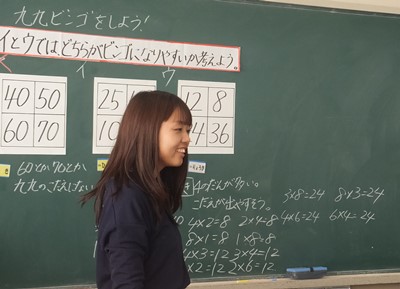 九九ビンゴをしよう!
イとウではどちらがビンゴになりやすいか考えよう。
イ ウ
40 50
60 70
25
10
12 8
24 36
60とか70とか
九九のこたえにない
4のだんが多い。
こたえが出やすそう。
4×2=8 2×4=8
8×1=8 1×8=8
4×3=12 3×4=12
×2=12 2×6=12
3×8=24 8×3=24
4×6=24 6×4=24